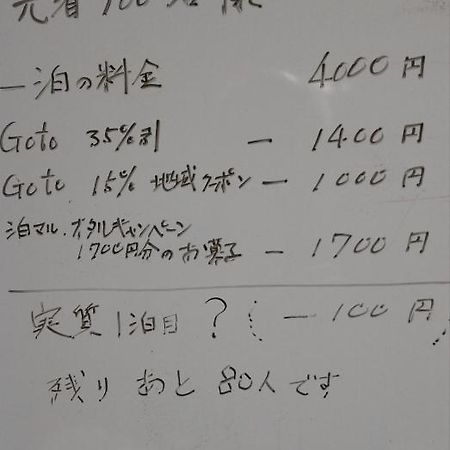 先着100名様
一泊の料金 4000円
Goto 35%割 ー 1400円
Goto 15% 地域クーポン ー 1000円
泊マル.オタルキャンペーン
1700円分のお菓子 ー 1700円
実質1泊目? (ー100円)
残り あと 80人です